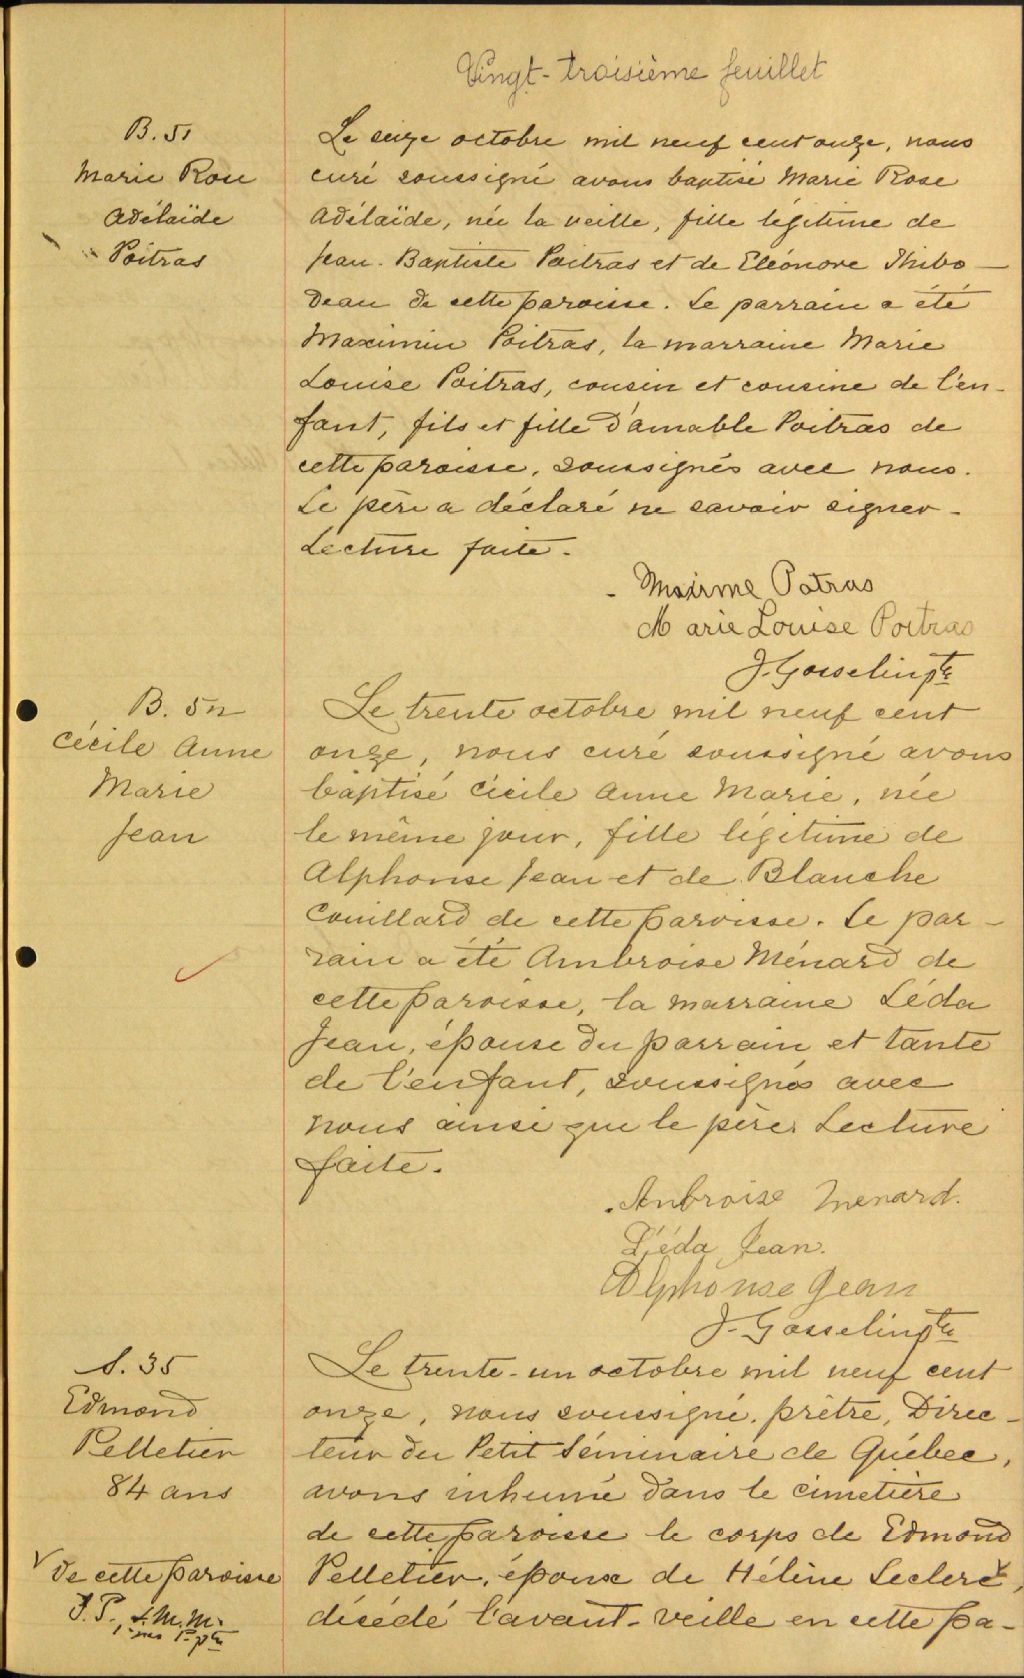 Vingt-troisième feuillet
B. 51
Marie Rose
Adélaïde
Poitras
Le seize octobre mil neuf cent onze, nous
curé soussigné avons baptisé Marie Rose
Adélaïde, née la veille, fille légitime de
Jean-Baptiste Poitras et de Eléonore Thibo-
deau de cette paroisse. Le parrain a été
Maximin Poitras, la marraine Marie
Louise Poitras, cousin et cousine de l'en-
fant, fils et fille d'Amable Poitras de
cette paroisse, soussignés avec nous.
Le père a déclaré ne savoir signer.
Lecture faite.
Maxime Potras
Marie Louise Poitras
J. Gosselin ptre
B. 52
Cécile Anne
Marie
Jean
Le trente octobre mil neuf cent
onze, nous curé soussigné avons
baptisé Cécile Anne Marie, née
le même jour, fille légitime de
Alphonse Jean et de Blanche
Couillard de cette paroisse. Le par-
rain a été Ambroise Ménard de
cette paroisse, la marraine Léda
Jean, épouse du parrain et tante
de l'enfant, soussignés avec
nous ainsi que le père. Lecture
faite.
Ambroise Menard.
Léda Jean.
Alphonse Jean
J. Gosselin ptre
S. 35
Edmond
Pelletier
84 ans
Le trente-un octobre mil neuf cent
onze, nous soussigné, prêtre, Direc-
teur du Petit Séminaire de Québec,
avons inhumé dans le cimetière
de cette paroisse le corps de Edmond
Pelletier, époux de Hélène Leclerc,
décédé l'avant-veille en cette pa-
√ De cette paroisse